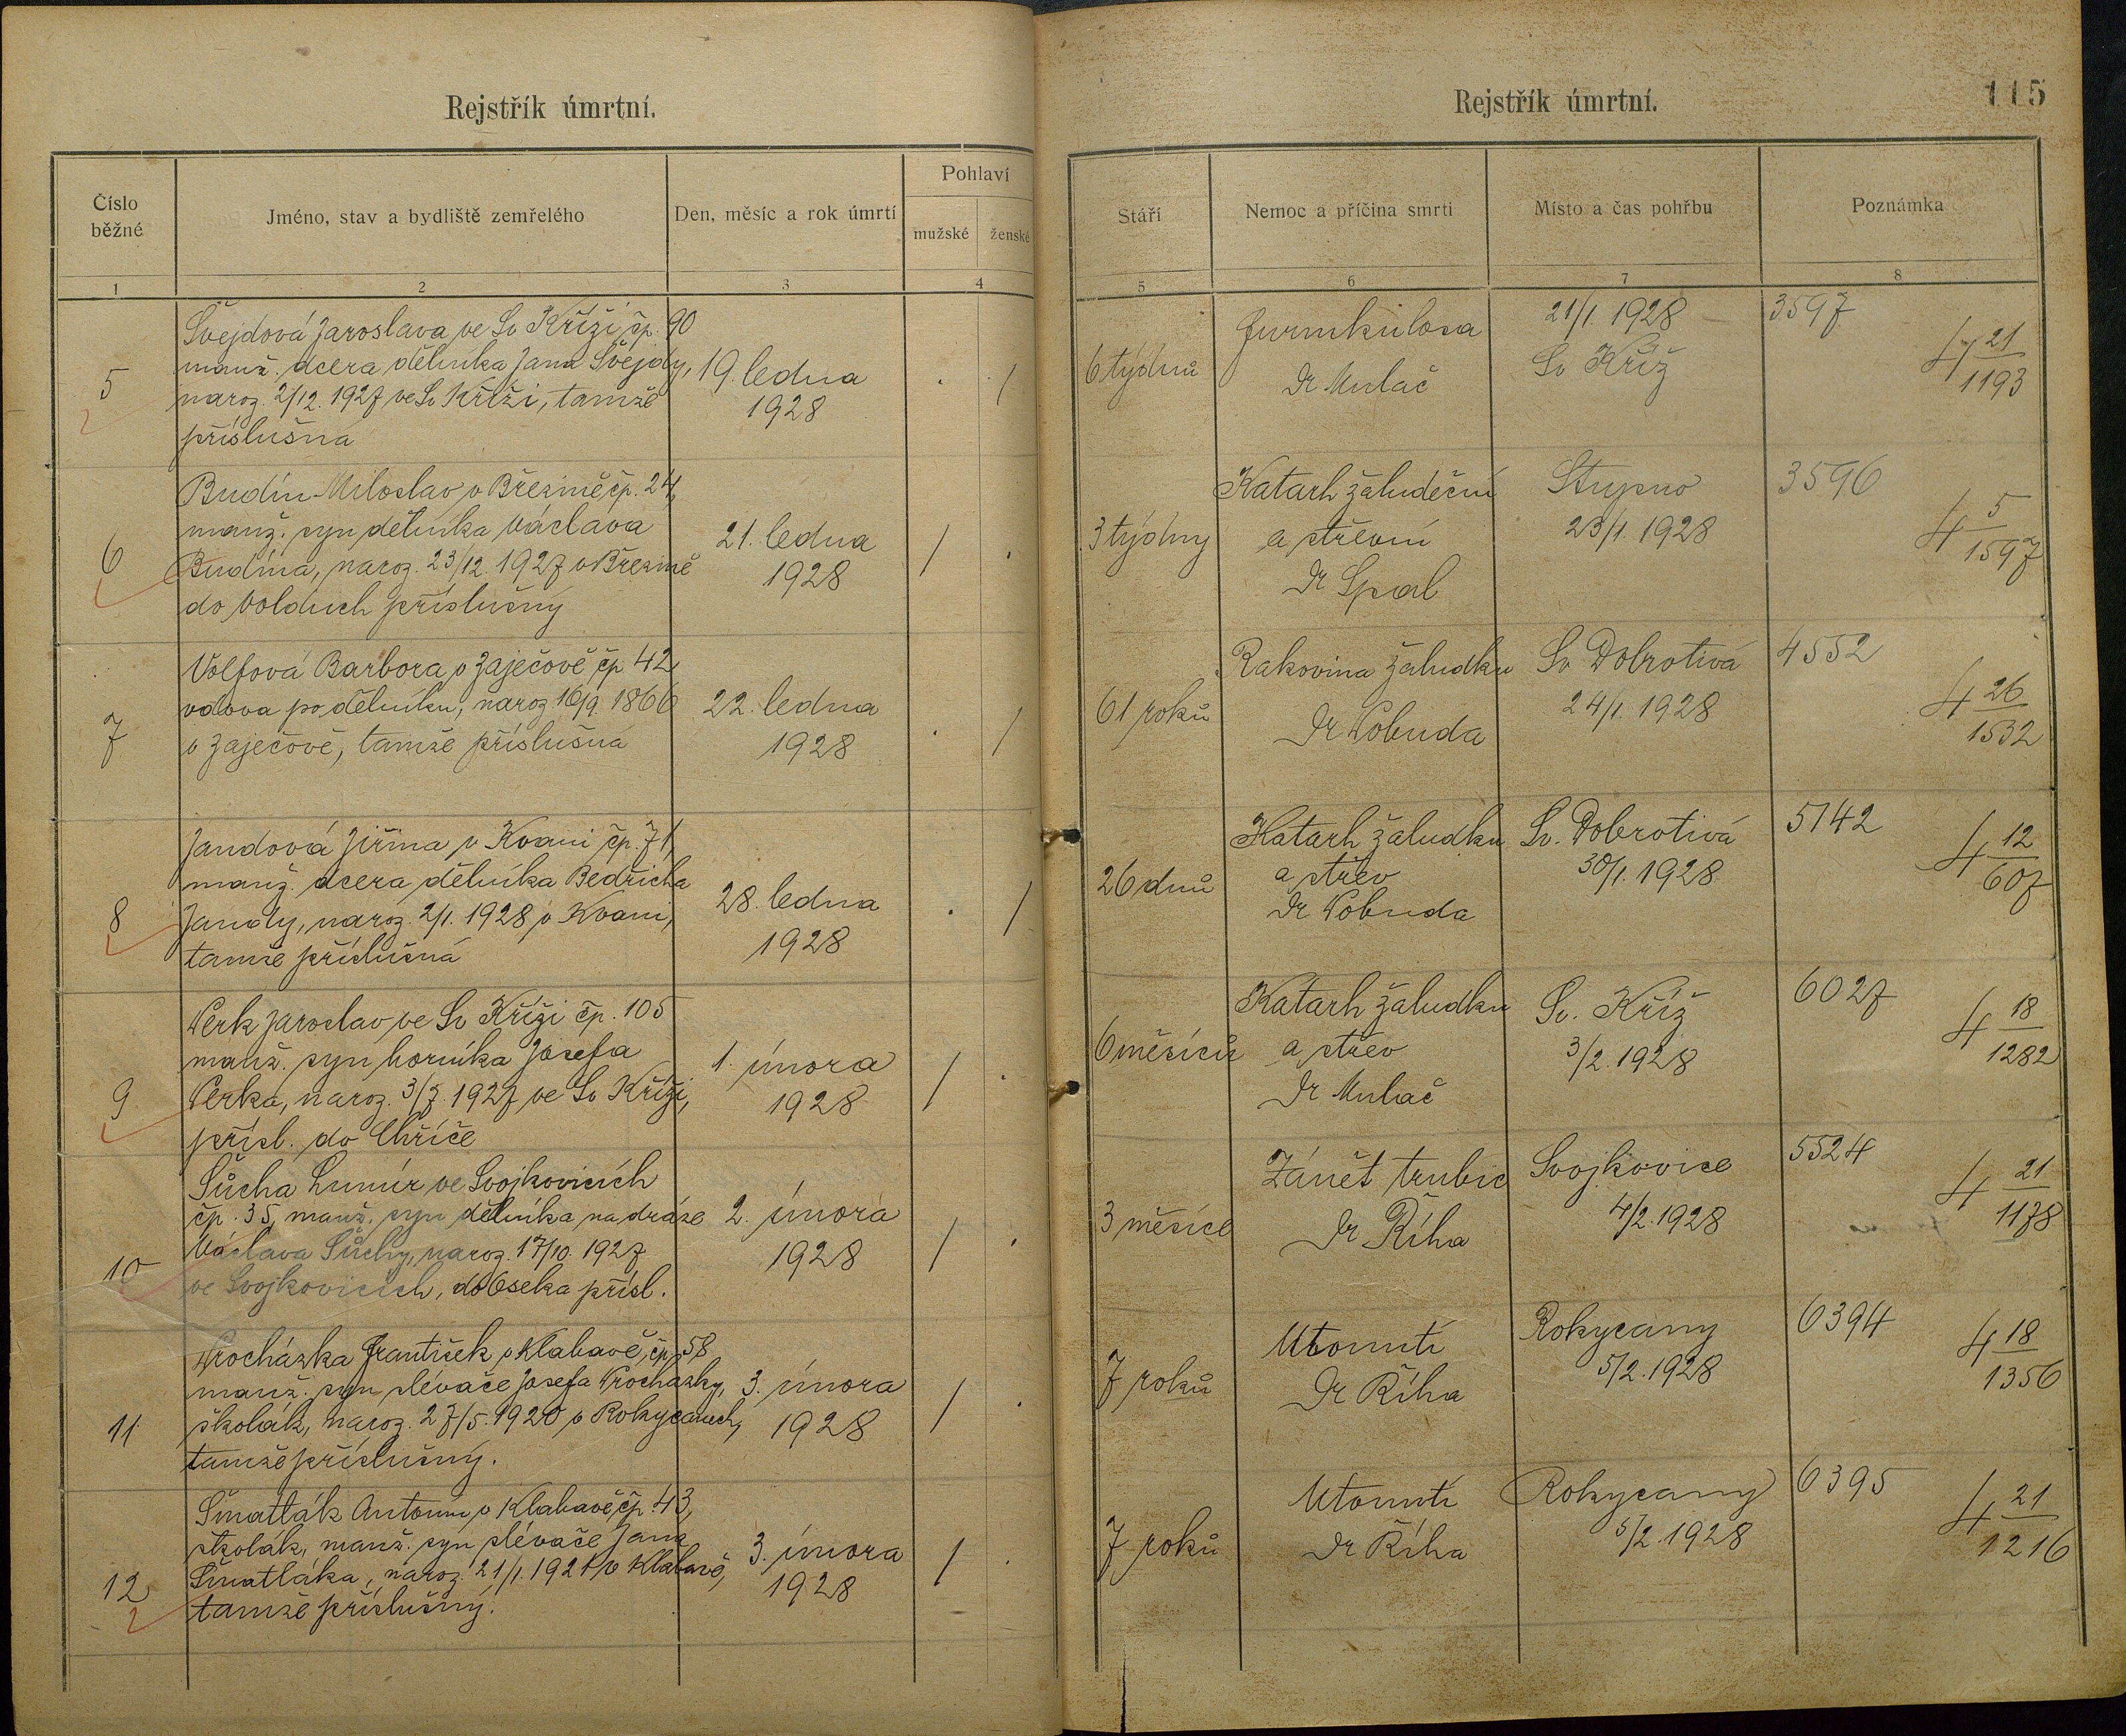 Rejstřík úmrtní.
Číslo běžné
Jméno, stav a bydliště zemřelého
Den, měsíc a rok úmrtí
Pohlaví
mužské
ženské
1
2
3
4
5
Švejdová Jaroslava ve Sv Kříži, čp. 90
manž. dcera dělníka Jana Švejdy,
naroz. 2/12. 1927 ve Sv Kříži, tamže
příslušná
19. ledna
1928
. /
6
Budín Miloslav v Březině čp. 24,
manž. syn dělníka Václava
Budína, naroz. 23/12 1927 v Březině
do Volduch příslušný
21. ledna
1928
/ .
7
Volfová Barbora v Zaječově čp 42,
vdova po dělníku, naroz 16/9. 1866
v Zaječově, tamže příslušná
22. ledna
1928
. /
8
Jandová Jiřina v Kvani čp. 71,
manž. dcera dělníka Bedřicha
Jandy, naroz. 2/1. 1928 v Kvani,
tamže příslušná
28. ledna
1928
. /
9
Perk Jaroslav ve Sv Kříži čp. 105
manž. syn horníka Josefa
Perka, naroz. 3/7. 1927 ve Sv Kříži,
přísl. do Chříče
1. února
1928
/ .
10
Šůcha Lumír ve Svojkovicích
čp. 35, manž. syn dělníka na dráze
Václava Šůchy, naroz. 17/10. 1927
ve Svojkovicích, do Oseka přísl.
2. února
1928
/ .
11
Procházka František v Klabavě, čp. 58
manž. syn slévače Josefa Procházky,
školák, naroz. 27/5. 1920 v Rokycanech,
tamže příslušný.
3. února
1928
/ .
12
Šmatlák Antonín v Klabavě, čp. 43,
školák, manž. syn slévače Jana
Šmatláka, naroz. 21/1. 1921 v Klabavě,
tamže příslušný.
3. února
1928
/ .
Rejstřík úmrtní.
115
Stáří
Nemoc a příčina smrti
Místo a čas pohřbu
Poznámka
5
6
7
8
6 týdnů
Furunkulosa
Dr Mulač
21/1. 1928
Sv Kříž
3597
4 21/1193
3 týdny
Katarh žaludeční
a střevní
Dr Spal
Stupno
23/1. 1928
3596
4 5/1597
61 roků
Rakovina žaludku
Dr Pobuda
Sv Dobrotivá
24/1. 1928
4552
4 26/1532
26 dnů
Katarh žaludku
a střev
Dr Pobuda
Sv. Dobrotivá
30/1. 1928
5142
4 12/607
6 měsíců
Katarh žaludku
a střev
Dr Mulač
Sv. Kříž
3/2. 1928
6027
4 18/1282
3 měsíce
Zánět trubic
Dr Říha
Svojkovice
4/2. 1928
5524
4 21/1178
7 roků
Utonutí
Dr Říha
Rokycany
5/2. 1928
6394
4 18/1356
7 roků
Utonutí
Dr Říha
Rokycany
5/2. 1928
6395
4 21/1216